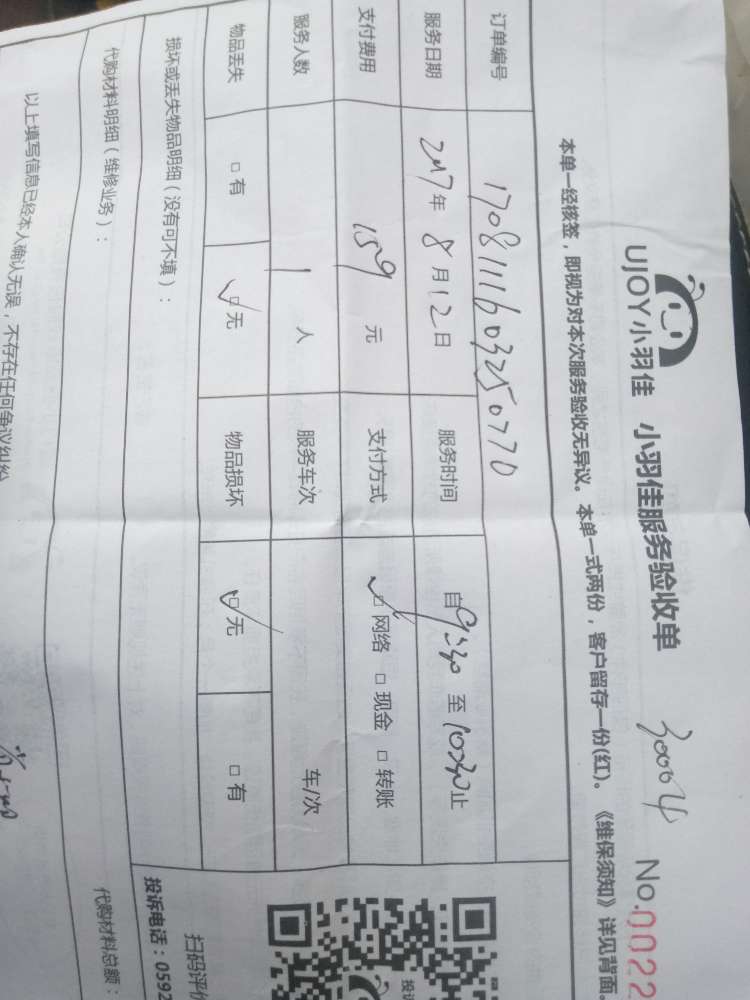 UJOY小羽佳 小羽佳服务验收单 30004 No.0022
本单一经核签，即视为对本次服务验收无异议。本单一式两份，客户留存一份(红)。《维保须知》详见背面。
订单编号 1708111603250770
服务日期 2017年8月12日 服务时间 自9:30至10:30止
支付费用 159元 支付方式 ☑网络 □现金 □转账
服务人数 1人 服务车次 车/次
物品丢失 □有 ☑无 物品损坏 ☑无 □有
损坏或丢失物品明细（没有可不填）：
代购材料明细（维修业务）： 代购材料总额：
以上填写信息已经本人确认无误，不存在任何争议纠纷
扫码评价
投诉电话：0592